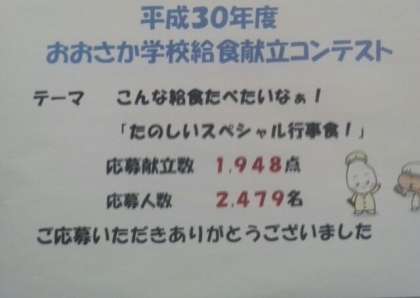 平成30年度
おおさか学校給食献立コンテスト
テーマ　こんな給食たべたいなぁ！
「たのしいスペシャル行事食！」
応募献立数　1,948点
応募人数　2,479名
ご応募いただきありがとうございました